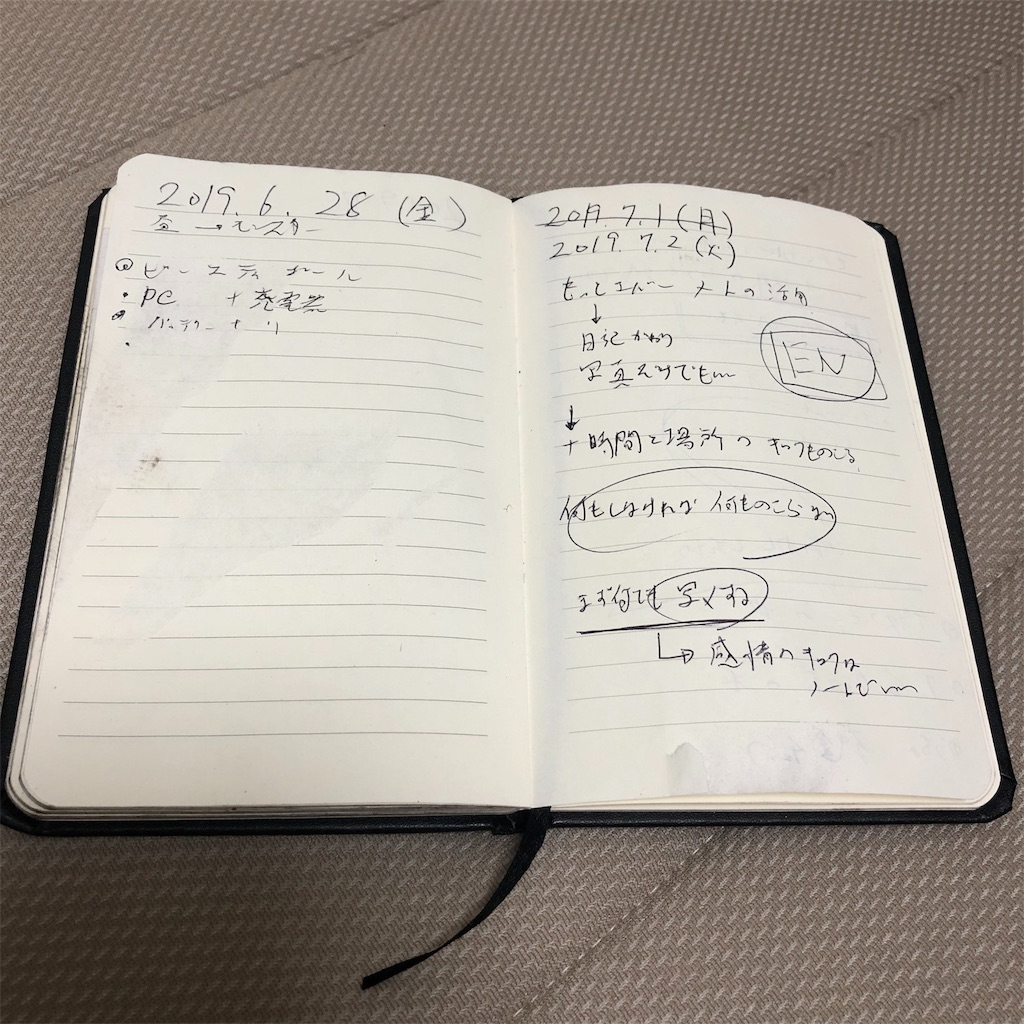 2019. 6. 28 (金)
→ モンスター
ビー
・PC + 充電器
・バッテリー
・
2019. 7. 1 (月)
2019. 7. 2 (火)
もっとエバーノートの活用
↓
日記がわり
写真だけでもいい
EN
↓
+ 時間と場所の キロクものこる
何もしなければ 何ものこらない
まず何でも 写メする
↳ 感情のキロクは
ノートでいい